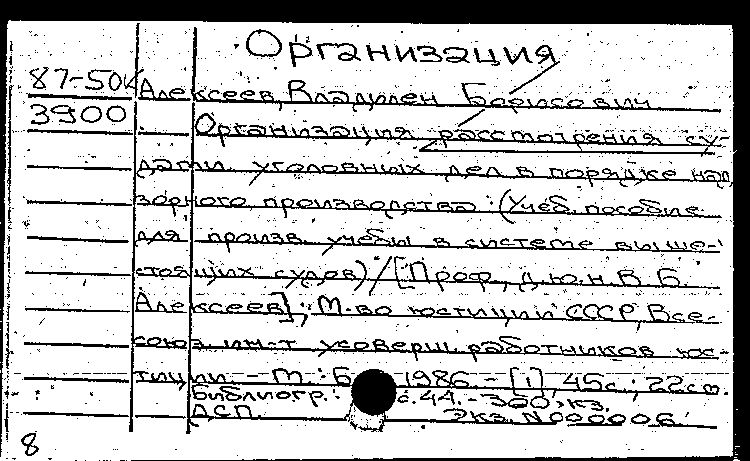 Организация
87-50 Алексеев, Владилен Борисович
3900 Организация рассмотрения су-
дами уголовных дел в порядке над
зорного производства : (Учеб. пособие
для произв. учебы в системе выше-
стоящих судов) / [Проф., д.ю.н. В. Б.
Алексеев] ; М-во юстиции СССР, Все-
союз. ин-т усоверш. работников юс-
тиции - М. : Б. 1986. - [1], 45с. ; 22см.
Библиогр.: с. 44. - 300 экз.
ДСП. Экз. N 000006
8